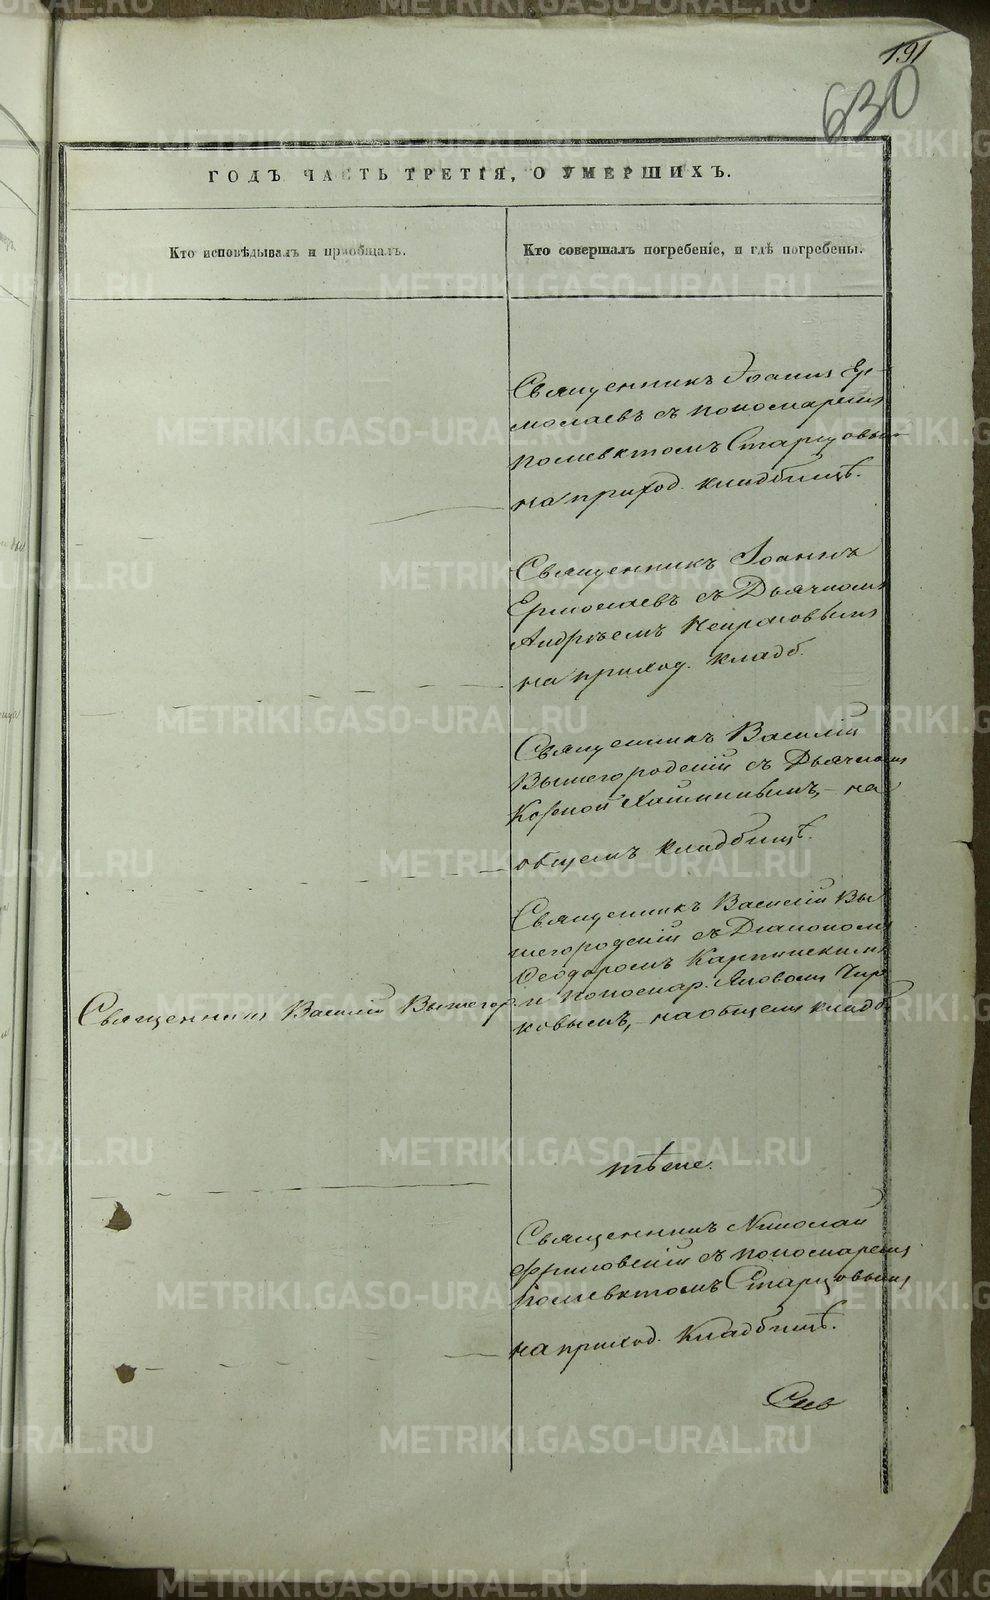 191
630
ГОДЪ ЧАСТЬ ТРЕТІЯ, О УМЕРШИХЪ.
Кто исповѣдывалъ и пріобщалъ.
Кто совершалъ погребеніе, и гдѣ погребены.
Священникъ Іоаннъ Ер-
молаевъ съ пономаремъ
Полиевктомъ Старцовымъ
на приход. кладбищѣ.
Священникъ Іоаннъ
Ермолаевъ съ Дьячкомъ
Андреемъ Некрасовымъ
на приход. кладб.
Священникъ Василій
Вышегородскій съ Дьячкомъ
Козмой на
общемъ кладбищѣ.
Священникъ Василій Вы
шегородскій съ Діакономъ
Ѳеодоромъ Карпинскимъ
и пономар. Яковомъ Чир
ковымъ, на общемъ кладб.
Священникъ Василій Вышегор.
Священникъ Николай
съ пономаремъ
Полиевктомъ Старцовымъ
на приход. кладбищѣ.
METRIKI.GASO-URAL.RU